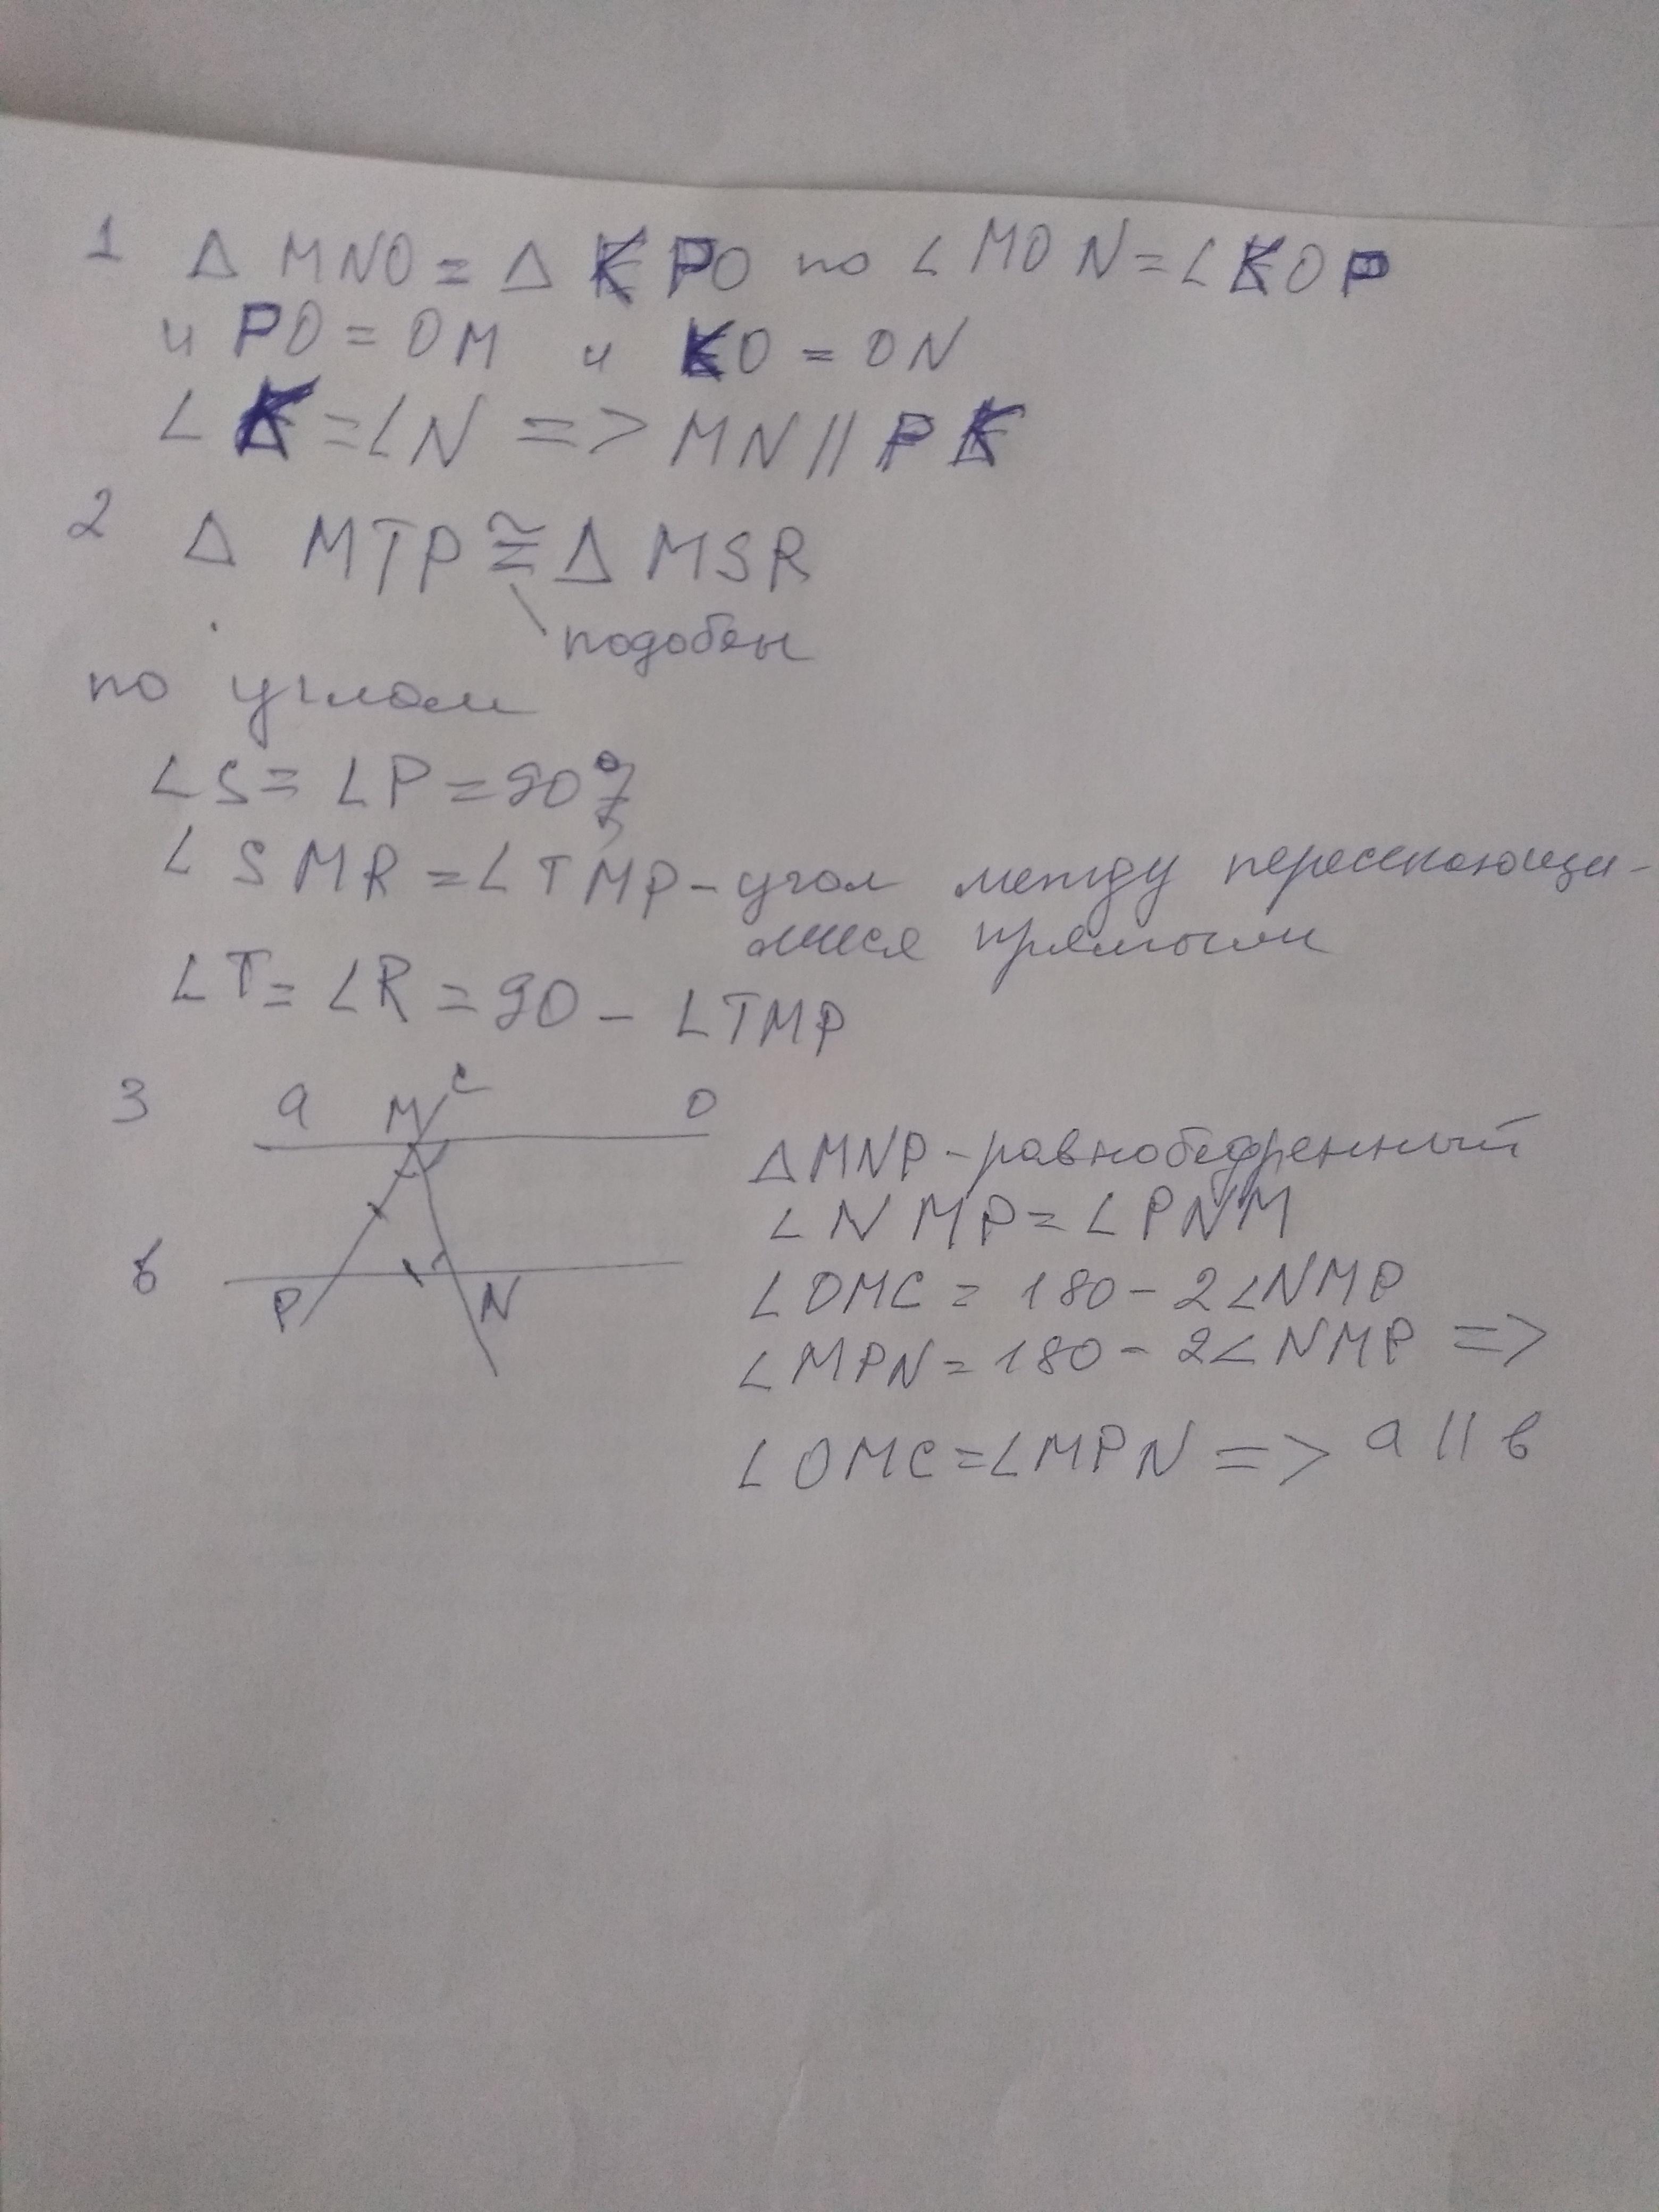 1 Δ MNO = Δ KPO по ∠MON = ∠KOP
и PO = OM и KO = ON
∠K = ∠N => MN || PK
2 Δ MTP ≅ Δ MSR
подобны
по углам
∠S = ∠P = 90°
∠SMR = ∠TMP - угол между пересекающи-
мися прямыми
∠T = ∠R = 90 - ∠TMP
3 a M c O
ΔMNP - равнобедренный
∠NMP = ∠PNM
в P N
∠OMC = 180 - 2∠NMP
∠MPN = 180 - 2∠NMP =>
∠OMC = ∠MPN => a || в